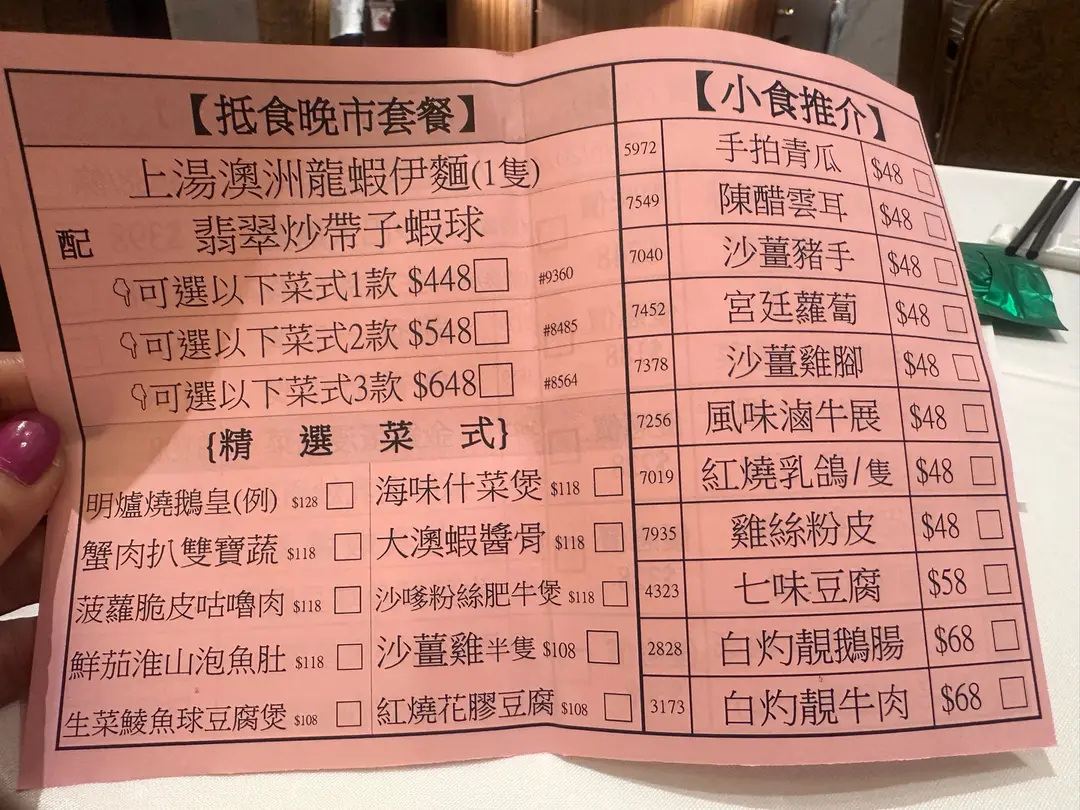 【抵食晚市套餐】
上湯澳洲龍蝦伊麵(1隻)
配 翡翠炒帶子蝦球
可選以下菜式1款 $448 #9360
可選以下菜式2款 $548 #8485
可選以下菜式3款 $648 #8564
{精選菜式}
明爐燒鵝皇(例) $128
海味什菜煲 $118
蟹肉扒雙寶蔬 $118
大澳蝦醬骨 $118
菠蘿脆皮咕嚕肉 $118
沙嗲粉絲肥牛煲 $118
鮮茄淮山泡魚肚 $118
沙薑雞半隻 $108
生菜鯪魚球豆腐煲 $108
紅燒花膠豆腐 $108
【小食推介】
5972 手拍青瓜 $48
7549 陳醋雲耳 $48
7040 沙薑豬手 $48
7452 宮廷蘿蔔 $48
7378 沙薑雞腳 $48
7256 風味滷牛展 $48
7019 紅燒乳鴿/隻 $48
7935 雞絲粉皮 $48
4323 七味豆腐 $58
2828 白灼靚鵝腸 $68
3173 白灼靚牛肉 $68